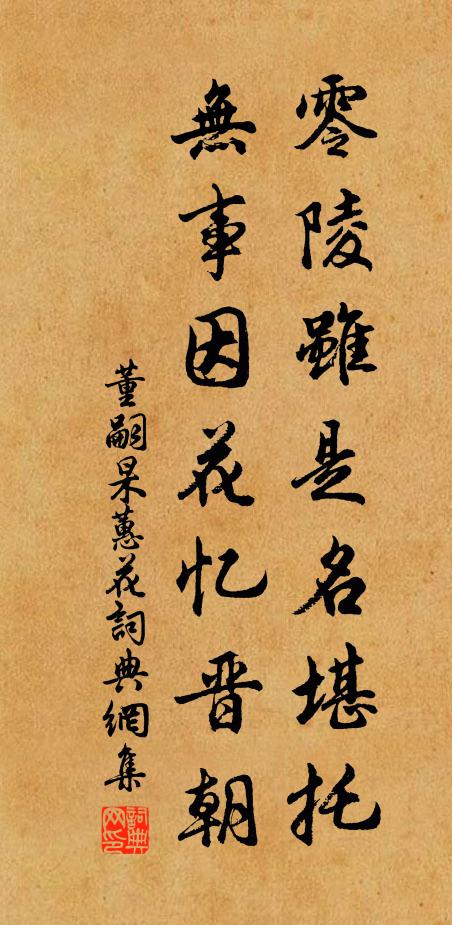 零陵雖是名堪托
無事因花忆晋朝
董嗣杲蕙花詞典網集
詞典
网印